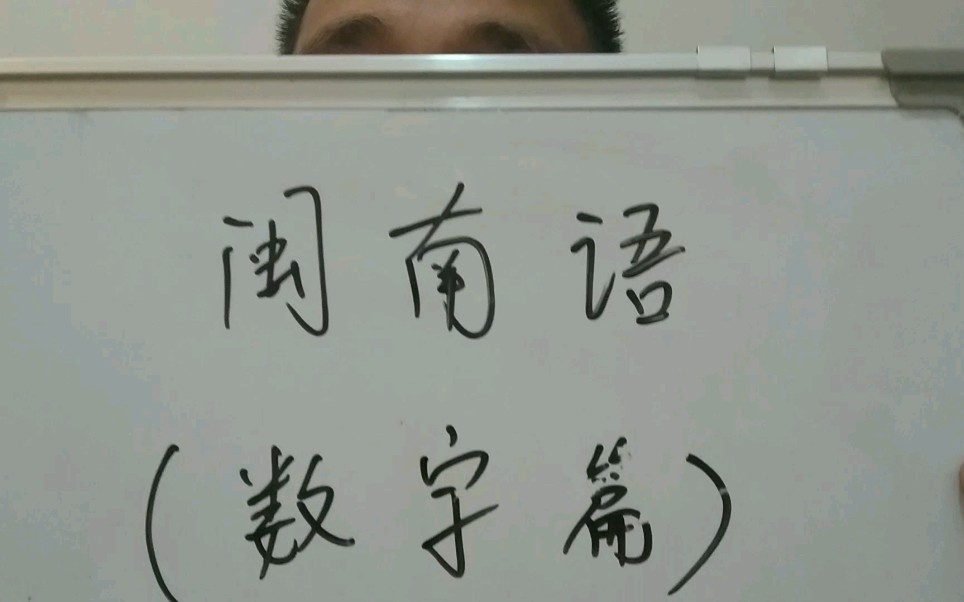 闽南语
(数字篇)